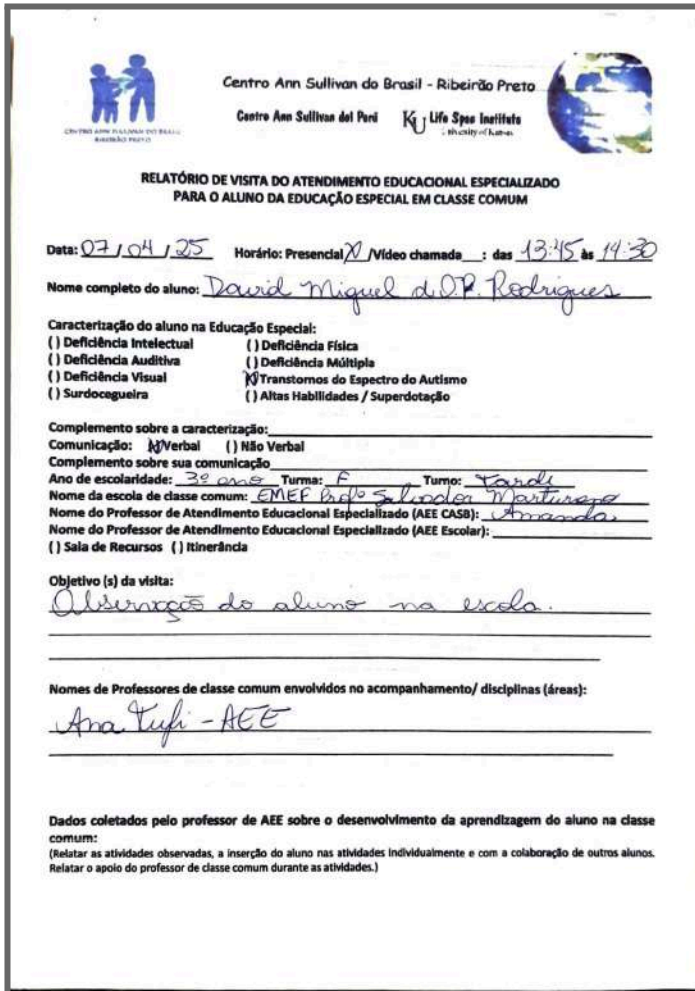 CENTRO ANN SULLIVAN DO BRASIL
RIBEIRÃO PRETO
Centro Ann Sullivan do Brasil - Ribeirão Preto
Centro Ann Sullivan del Perú KU Life Span Institute
University of Kansas
RELATÓRIO DE VISITA DO ATENDIMENTO EDUCACIONAL ESPECIALIZADO
PARA O ALUNO DA EDUCAÇÃO ESPECIAL EM CLASSE COMUM
Data: 07/04/25 Horário: Presencial X /Vídeo chamada__: das 13:45 às 14:30
Nome completo do aluno: David Miguel d.O.P. Rodrigues
Caracterização do aluno na Educação Especial:
( ) Deficiência Intelectual ( ) Deficiência Física
( ) Deficiência Auditiva ( ) Deficiência Múltipla
( ) Deficiência Visual (X) Transtornos do Espectro do Autismo
( ) Surdocegueira ( ) Altas Habilidades / Superdotação
Complemento sobre a caracterização:
Comunicação: (X) Verbal ( ) Não Verbal
Complemento sobre sua comunicação
Ano de escolaridade: 3º ano Turma: F Turno: Tarde
Nome da escola de classe comum: EMEF Profº Salvador Marturano
Nome do Professor de Atendimento Educacional Especializado (AEE CASB): Amanda
Nome do Professor de Atendimento Educacional Especializado (AEE Escolar):
( ) Sala de Recursos ( ) Itinerância
Objetivo (s) da visita:
Observação do aluno na escola.
Nomes de Professores de classe comum envolvidos no acompanhamento/ disciplinas (áreas):
Ana Tufi - AEE
Dados coletados pelo professor de AEE sobre o desenvolvimento da aprendizagem do aluno na classe
comum:
(Relatar as atividades observadas, a inserção do aluno nas atividades individualmente e com a colaboração de outros alunos.
Relatar o apoio do professor de classe comum durante as atividades.)